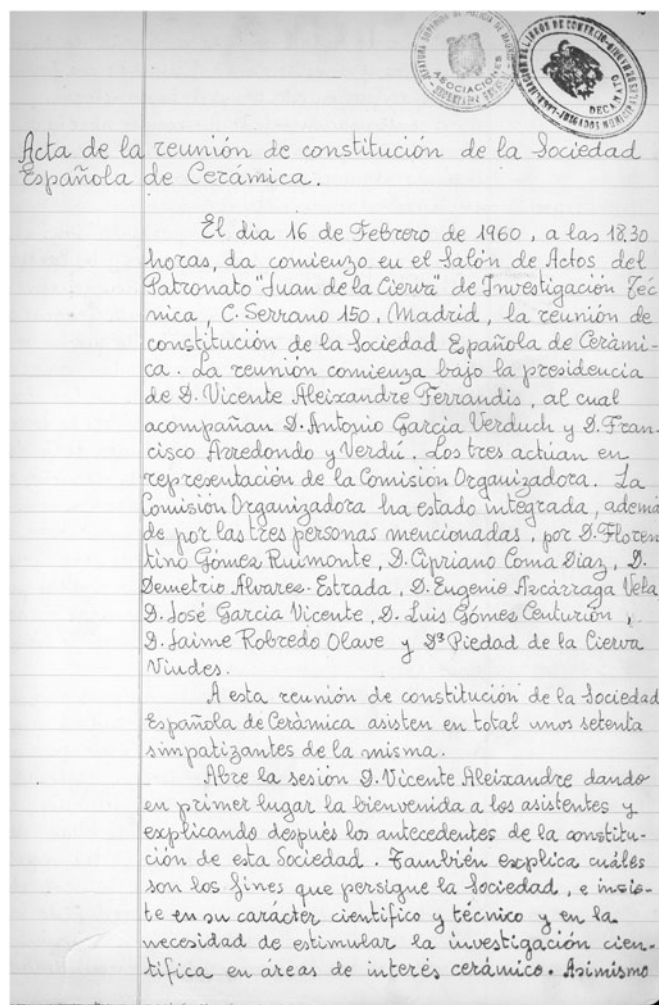 JEFATURA SUPERIOR DE POLICIA DE MADRID
ASOCIACIONES
DECANATO
Acta de la reunión de constitución de la Sociedad
Española de Cerámica.
El dia 16 de Febrero de 1960, a las 18.30
horas, da comienzo en el Salón de Actos del
Patronato "Juan de la Cierva" de Investigación Téc
nica, C. Serrano 150, Madrid, la reunión de
constitución de la Sociedad Española de Cerámi-
ca. La reunión comienza bajo la presidencia
de D. Vicente Aleixandre Ferrandis, al cual
acompañan D. Antonio García Verduch y D. Fran-
cisco Arredondo y Verdú. Los tres actúan en
representación de la Comisión Organizadora. La
Comisión Organizadora ha estado integrada, ademá
de por las tres personas mencionadas, por D. Floren
tino Gómez Ruimonte, D. Cipriano Coma Diaz, D.
Demetrio Alvarez-Estrada, D. Eugenio Azcárraga Vela
D. José Garcia Vicente, D. Luis Gómez Centurión,
D. Jaime Robredo Olave y Dª Piedad de la Cierva
Viudes.
A esta reunión de constitución de la Sociedad
Española de Cerámica asisten en total unos setenta
simpatizantes de la misma.
Abre la sesión D. Vicente Aleixandre dando
en primer lugar la bienvenida a los asistentes y
explicando después los antecedentes de la constitu-
ción de esta Sociedad. También explica cuáles
son los fines que persigue la Sociedad, e insis-
te en su carácter científico y técnico y en la
necesidad de estimular la investigación cien-
tífica en áreas de interés cerámico. Asimismo